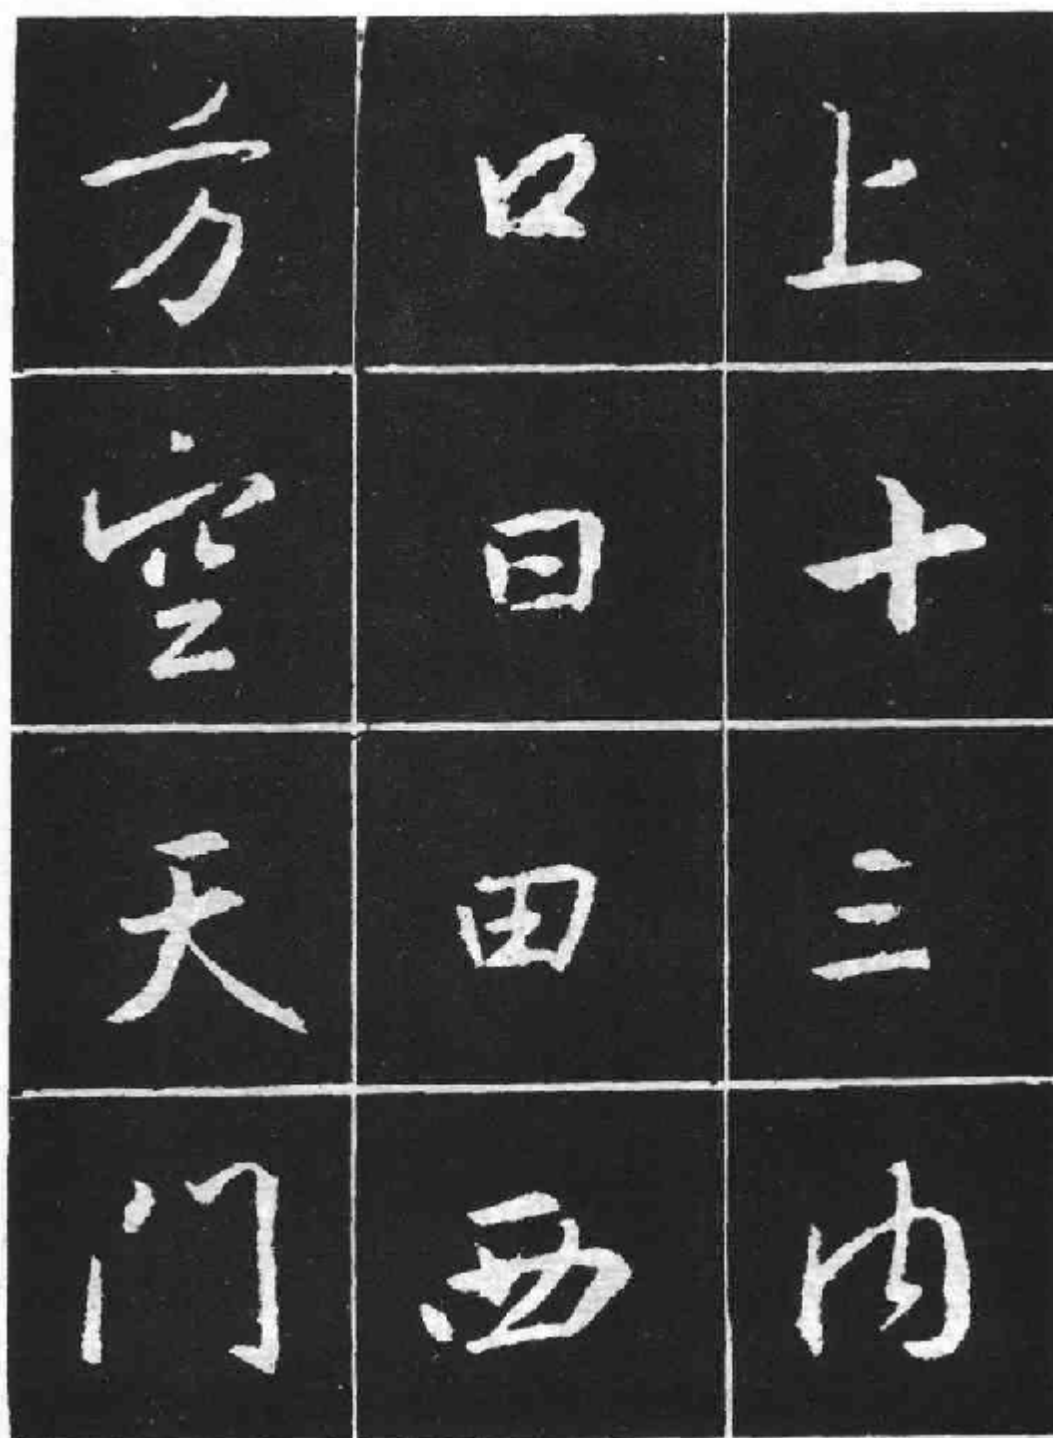 上十三内
口日田西
方空天门